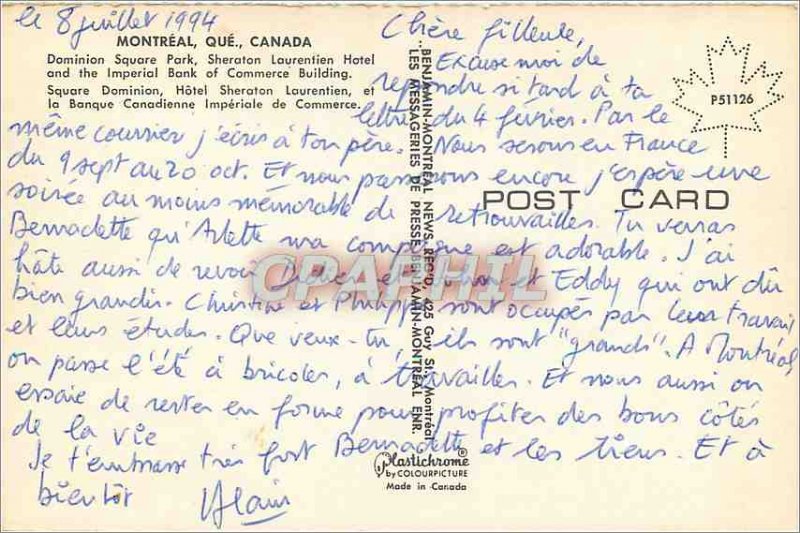 le 8 juillet 1994
MONTRÉAL, QUÉ., CANADA
Dominion Square Park, Sheraton Laurentien Hotel
and the Imperial Bank of Commerce Building.
Square Dominion, Hôtel Sheraton Laurentien, et
la Banque Canadienne Impériale de Commerce.
Chère filleule,
Excuse moi de
repondre si tard à ta
lettre du 4 février. Par le
même courrier j'écris à ton père. Nous serons en France
du 9 sept au 20 oct. Et nous passerons encore j'espère une
soirée au moins mémorable de retrouvailles. Tu verras
Bernadette qu'Arlette ma compagne est adorable. J'ai
hâte aussi de revoir et Eddy qui ont dû
bien grandir. Christine et Philippe sont occupés par leur travail
et leurs études. Que veux-tu, ils sont "grands". A Montréal,
on passe l'été à bricoler, à travailler. Et nous aussi on
essaie de rester en forme pour profiter des bons côtés
de la vie
Je t'embrasse très fort Bernadette et les tiens. Et à
bientôt Alain
BENJAMIN-MONTREAL NEWS, REG'D, 425 Guy St., Montréal
LES MESSAGERIES DE PRESSE BENJAMIN-MONTREAL ENR.
P51126
POST CARD
CPAPHIL
Plastichrome
by COLOURPICTURE
Made in Canada